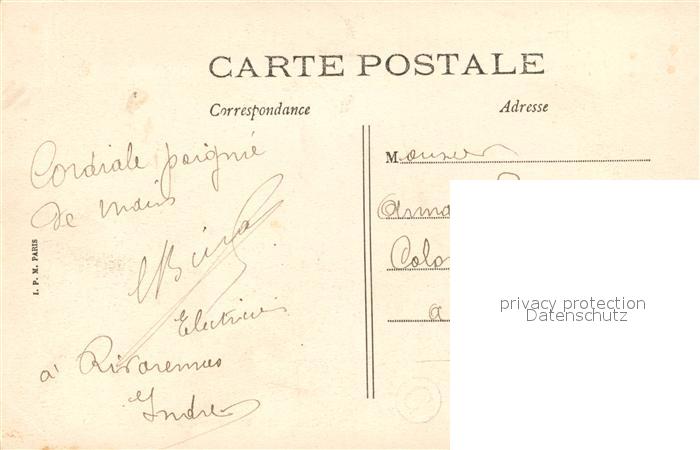 CARTE POSTALE
Correspondance
Adresse
Cordiale poignié
de main
Electricien
à Rivarennes
Indre
I. P. M. PARIS
Monsieur
Colo
a
privacy protection
Datenschutz